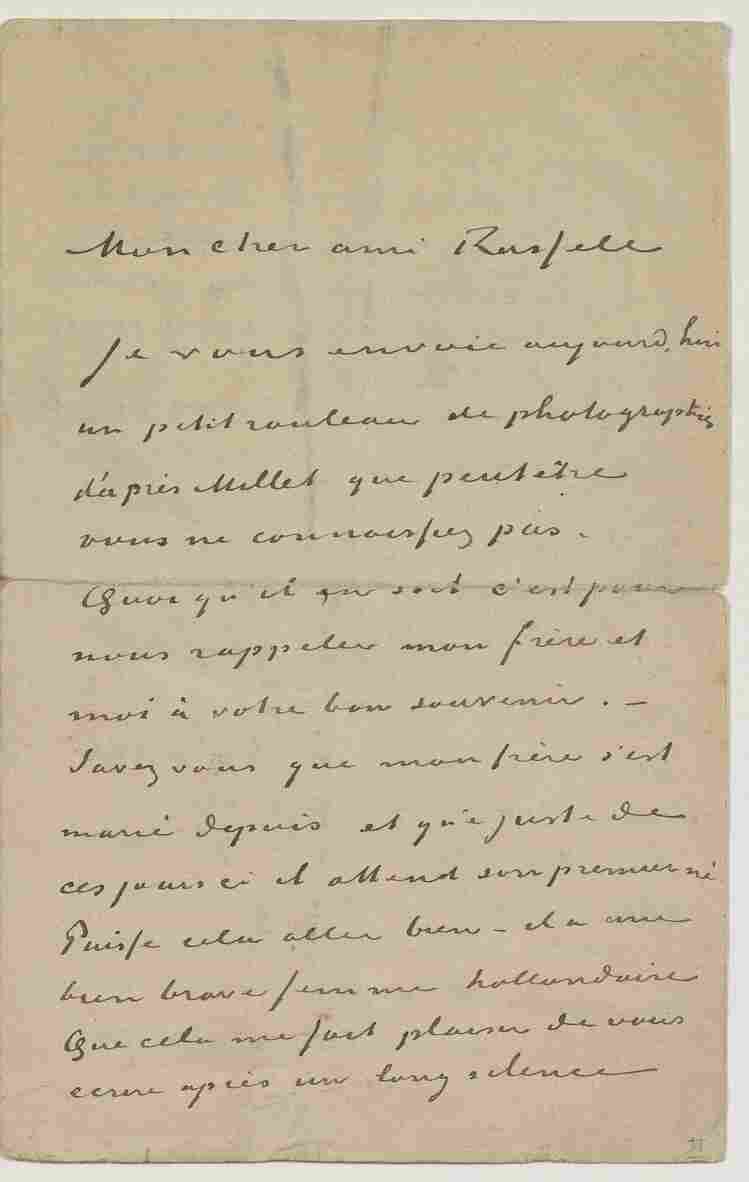 Mon cher ami Russell
Je vous envoie aujourd'hui
un petit rouleau de photographies
d'après Millet que peut être
vous ne connaissez pas.
Quoi qu'il en soit c'est pour
nous rappeler mon frère et
moi à votre bon souvenir. —
Savez vous que mon frère s'est
marié depuis et que juste de
ces jours ci il attend son premier né
Puisse cela aller bien – il a une
bien brave femme hollandaise
Que cela me fait plaisir de vous
ecrire après un long silence